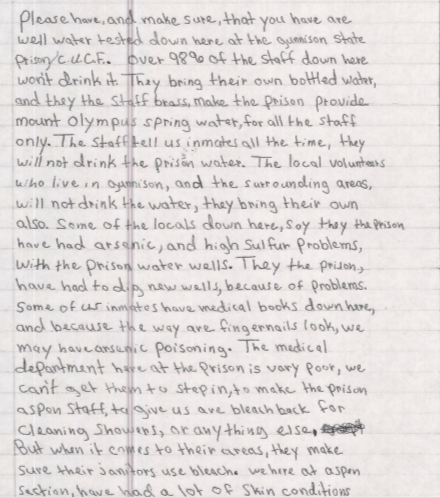 Please have, and make sure, that you have are
well water tested down here at the gunnison state
prison/C.U.C.F. Over 98% of the staff down here
won't drink it They bring their own bottled water,
and they the staff brass, make the prison provide
mount Olympus spring water, for all the staff
only. The staff tell us inmates all the time, they
will not drink the prison water. The local volunteers
who live in gunnison, and the surrounding areas,
will not drink the water, they bring their own
also. Some of the locals down here, say they the prison
have had arsenic, and high sulfur problems,
with the prison water wells. They the prison,
have had to dig new wells, because of problems.
Some of us inmates have medical books down here,
and because the way are fingernails look, we
may have arsenic poisoning. The medical
department here at the prison is vary poor, we
can't get them to step in, to make the prison
aspon staff, to give us are bleach back for
cleaning showers, or any thing else.
But when it comes to their areas, they make
sure their janitors use bleach. we here at aspen
section, have had a lot of skin conditions